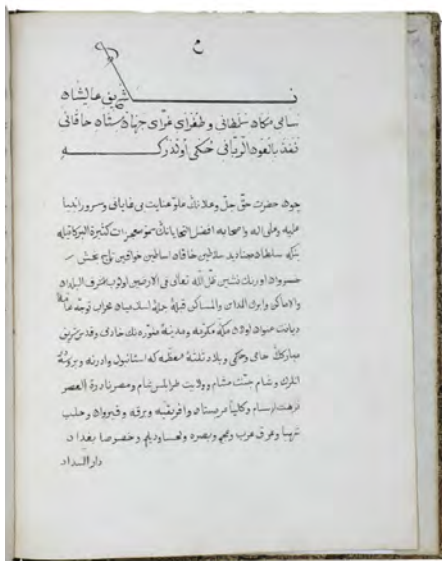 نـــشان شريف عاليشان
سامئ مكان سلطانى و طغراى غراى جهان ستان خاقانى
نفذ بالعون الربانى حكمى اولدر كـــه
چون حضرت حق جل وعلانك علو عنايت بى غاياتى وسرور انبيا
عليه وعلى اله واصحابه افضل التحاياتك سمو معجزات كثيرة البركاتيله
بنكه سلطان سلاطين خاقان اساطين خواقين تاج بخش
خسروان اورنك نشين ظل الله تعالى فى الارضين اولوب اشرف البلدان
والاماكن وابرك المداين والمساكن قبلهٔ جملهٔ اسلاميان محراب توجه
ديانت عنوان اولان مكهٔ مكرمه ومدينهٔ منورهنك خادمى وقدس شريف
مباركك حامى وحاكمى وبلاد ثلثهٔ معظمه كه استانبول وادرنه وبروسه
وشام جنت مشام وولايت طرابلس شام ومصر نادرة العصر
وافريقيه وبرقه وقيروان وحلب
شهبا وعراق عرب وعجم وبصره ولحسا وديلم وخصوصا بغداد
دار السداد